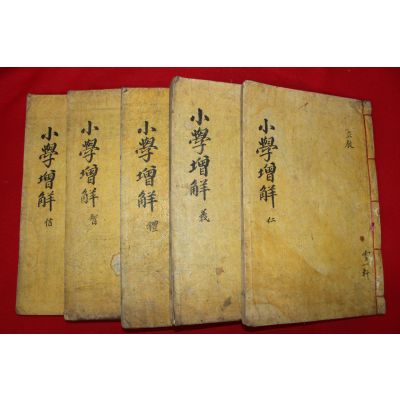 小學增解 仁
小學增解 義
小學增解 禮
小學增解 智
小學增解 信